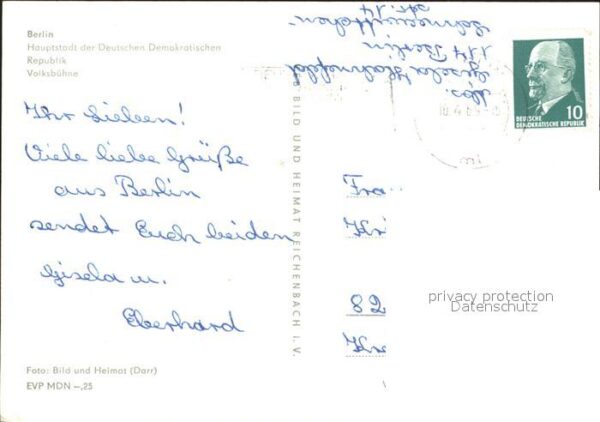 Berlin
Hauptstadt der Deutschen Demokratischen
Republik
Volksbühne
Ihr Lieben!
Viele liebe Grüße
aus Berlin
sendet Euch beiden
Gisela u.
Eberhard
Foto: Bild und Heimat (Darr)
EVP MDN –,25
BILD UND HEIMAT REICHENBACH I. V.
Abs.
Gisela
114 Berlin
Str. 14
10
DEUTSCHE
DEMOKRATISCHE REPUBLIK
Fra
82
privacy protection
Datenschutz